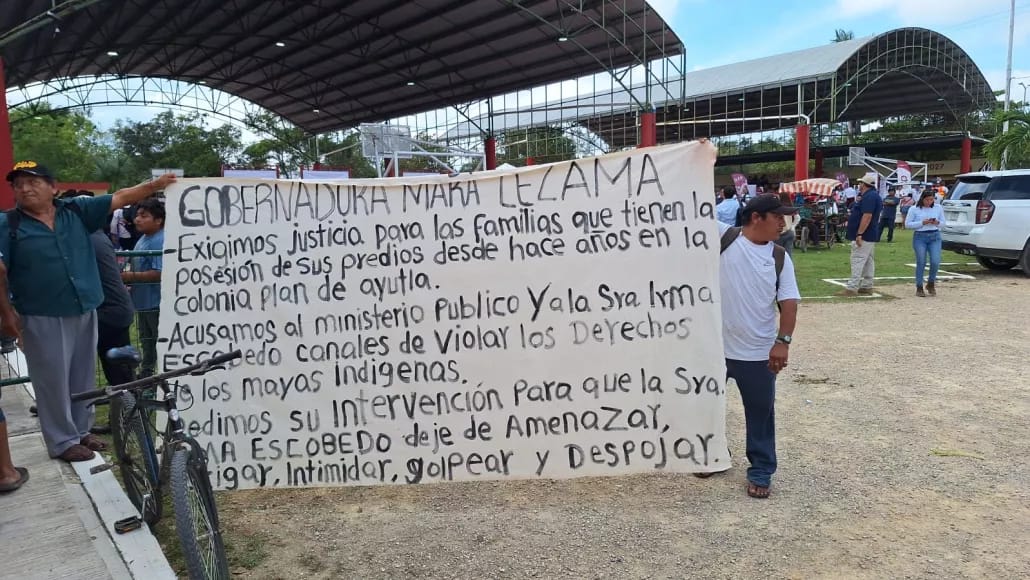 GOBERNADORA MARA LEZAMA
-Exigimos justicia para las familias que tienen la
posesión de sus predios desde hace años en la
colonia plan de ayutla.
-Acusamos al ministerio Publico Y a la Sra Irma
Escobedo canales de violar los Derechos
de los mayas indigenas.
pedimos su Intervención para que la Sra.
MA ESCOBEDO deje de Amenazar,
igar, Intimidar, golpear y Despojar.